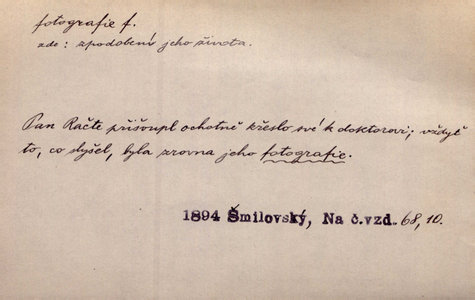 fotografie f.
zde: zpodobení jeho života.
Pan Račte přišoupl ochotně křeslo své k doktorovi; vždyť
to, co slyšel, byla zrovna jeho fotografie.
1894 Šmilovský, Na č.vzd. 68, 10.